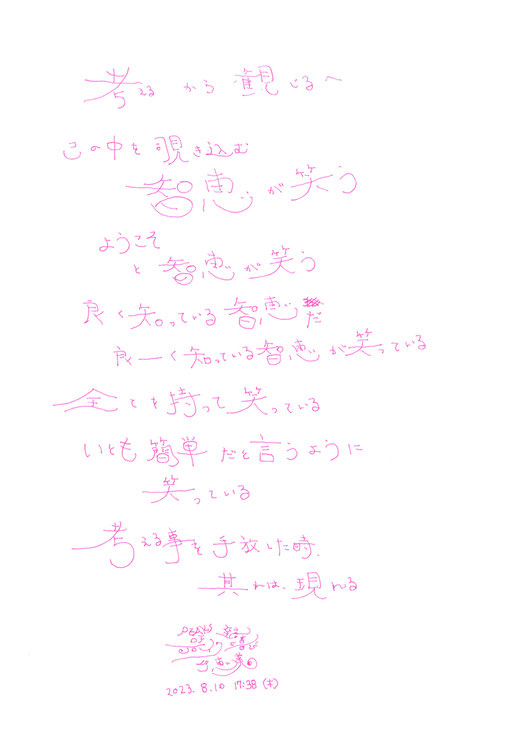 考えるから観じるへ
この中を覗き込む
智恵が笑う
ようこそ
と智恵が笑う
良く知っている智恵だ
良ーく知っている智恵が笑っている
全てを持って笑っている
いとも簡単だと言うように
笑っている
考える事を手放した時、
其れは、現れる
2023.8.10 17:38 (木)